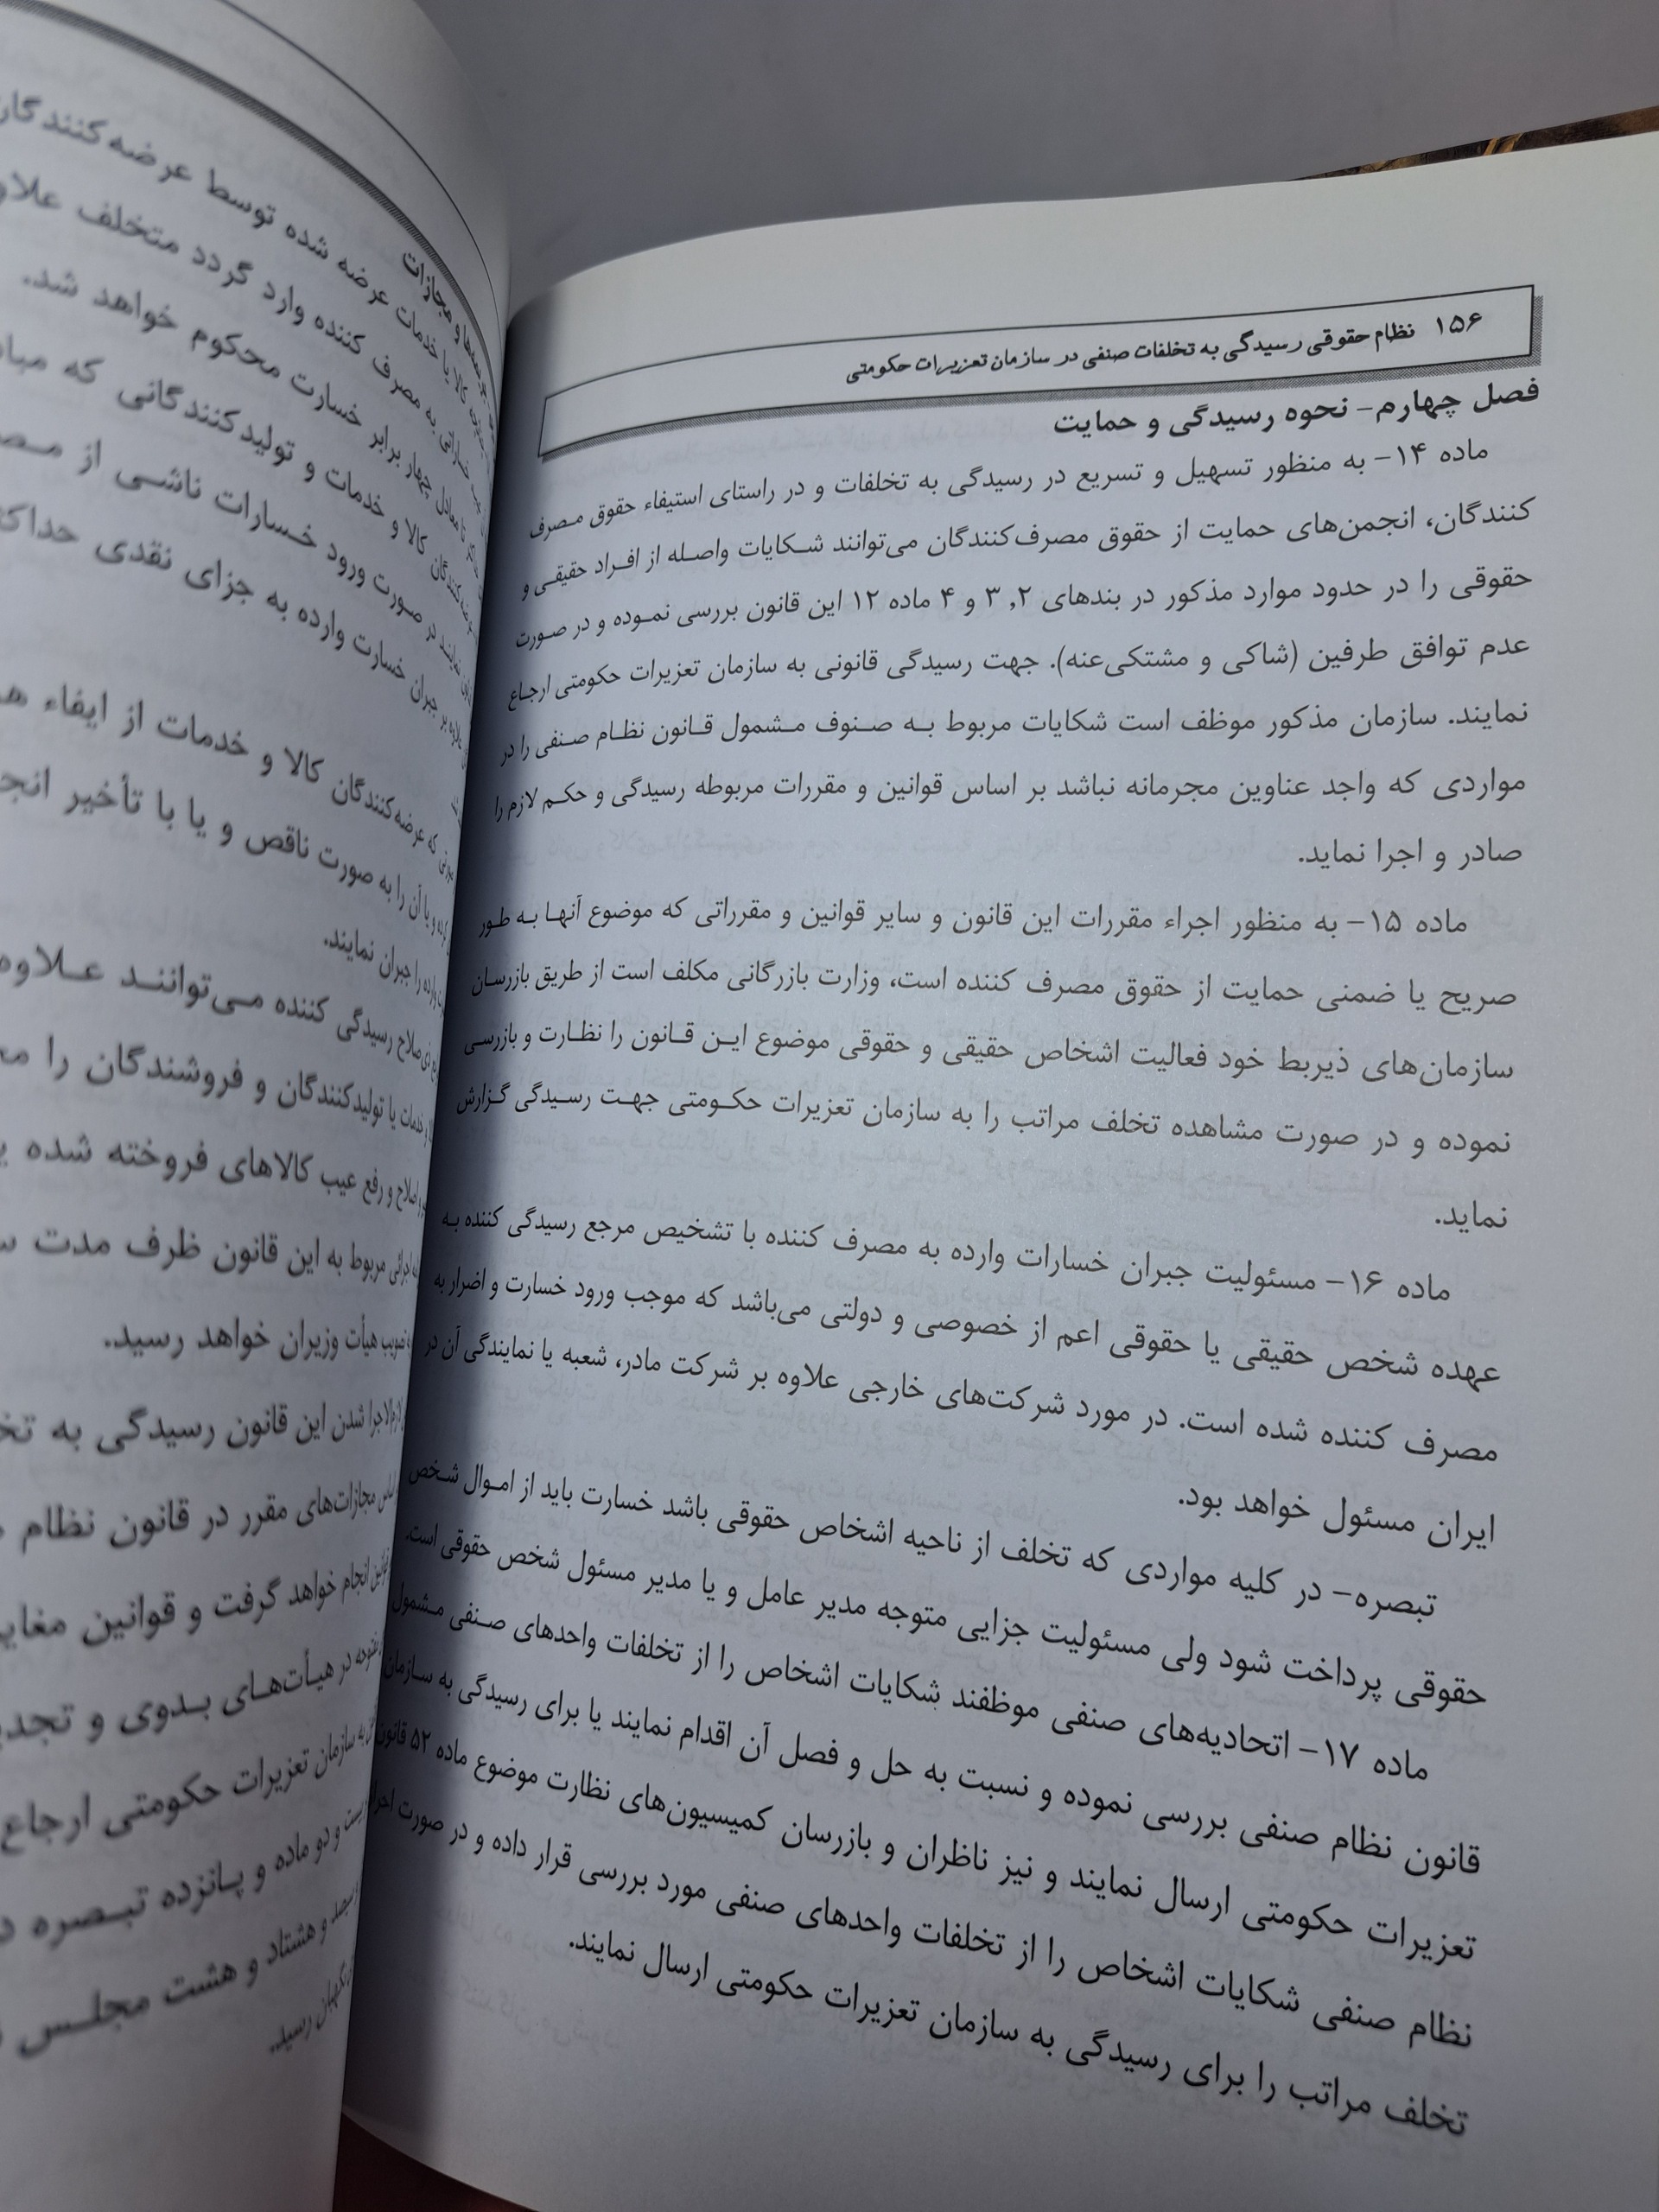 ۱۵۶ نظام حقوقی رسیدگی به تخلفات صنفی در سازمان تعزیرات حکومتی
فصل چهارم- نحوه رسیدگی و حمایت
ماده ۱۴- به منظور تسهیل و تسریع در رسیدگی به تخلفات و در راستای استیفاء حقوق مصرف
کنندگان، انجمن‌های حمایت از حقوق مصرف‌کنندگان می‌توانند شکایات واصله از افراد حقیقی و
حقوقی را در حدود موارد مذکور در بندهای ۲, ۳ و ۴ ماده ۱۲ این قانون بررسی نموده و در صورت
عدم توافق طرفین (شاکی و مشتکی‌عنه). جهت رسیدگی قانونی به سازمان تعزیرات حکومتی ارجاع
نمایند. سازمان مذکور موظف است شکایات مربوط به صنوف مشمول قانون نظام صنفی را در
مواردی که واجد عناوین مجرمانه نباشد بر اساس قوانین و مقررات مربوطه رسیدگی و حکم لازم را
صادر و اجرا نماید.
ماده ۱۵- به منظور اجراء مقررات این قانون و سایر قوانین و مقرراتی که موضوع آنها به طور
صریح یا ضمنی حمایت از حقوق مصرف کننده است، وزارت بازرگانی مکلف است از طریق بازرسان
سازمان‌های ذیربط خود فعالیت اشخاص حقیقی و حقوقی موضوع این قانون را نظارت و بازرسی
نموده و در صورت مشاهده تخلف مراتب را به سازمان تعزیرات حکومتی جهت رسیدگی گزارش
نماید.
ماده ۱۶- مسئولیت جبران خسارات وارده به مصرف کننده با تشخیص مرجع رسیدگی کننده به
عهده شخص حقیقی یا حقوقی اعم از خصوصی و دولتی می‌باشد که موجب ورود خسارت و اضرار به
مصرف کننده شده است. در مورد شرکت‌های خارجی علاوه بر شرکت مادر، شعبه یا نمایندگی آن در
ایران مسئول خواهد بود.
تبصره- در کلیه مواردی که تخلف از ناحیه اشخاص حقوقی باشد خسارت باید از اموال شخص
حقوقی پرداخت شود ولی مسئولیت جزایی متوجه مدیر عامل و یا مدیر مسئول شخص حقوقی است.
ماده ۱۷- اتحادیه‌های صنفی موظفند شکایات اشخاص را از تخلفات واحدهای صنفی مشمول
قانون نظام صنفی بررسی نموده و نسبت به حل و فصل آن اقدام نمایند یا برای رسیدگی به سازمان
تعزیرات حکومتی ارسال نمایند و نیز ناظران و بازرسان کمیسیون‌های نظارت موضوع ماده ۵۲ قانون
نظام صنفی شکایات اشخاص را از تخلفات واحدهای صنفی مورد بررسی قرار داده و در صورت
تخلف مراتب را برای رسیدگی به سازمان تعزیرات حکومتی ارسال نمایند.
و مجازات
کالا یا خدمات عرضه شده توسط عرضه‌کنندگان
به مصرف کننده وارد گردد متخلف
معادل چهار برابر خسارت محکوم خواهد شد.
کالا و خدمات و تولیدکنندگانی که
در صورت ورود خسارات ناشی از
علاوه بر جبران خسارت وارده به جزای نقدی
که عرضه‌کنندگان کالا و خدمات از ایفاء
و یا آن را به صورت ناقص و یا با تأخیر
را جبران نمایند.
صلاح رسیدگی کننده می‌توانند علاوه
خدمات یا تولیدکنندگان و فروشندگان را
اصلاح و رفع عیب کالاهای فروخته شده
مربوط به این قانون ظرف مدت
تصویب هیأت وزیران خواهد رسید.
شدن این قانون رسیدگی به
مجازات‌های مقرر در قانون نظام
انجام خواهد گرفت و قوانین
در هیأت‌های بدوی و
به سازمان تعزیرات حکومتی ارجاع
و دو ماده و پانزده تبصره
و هشتاد و هشت مجلس
نگهبان رسید.